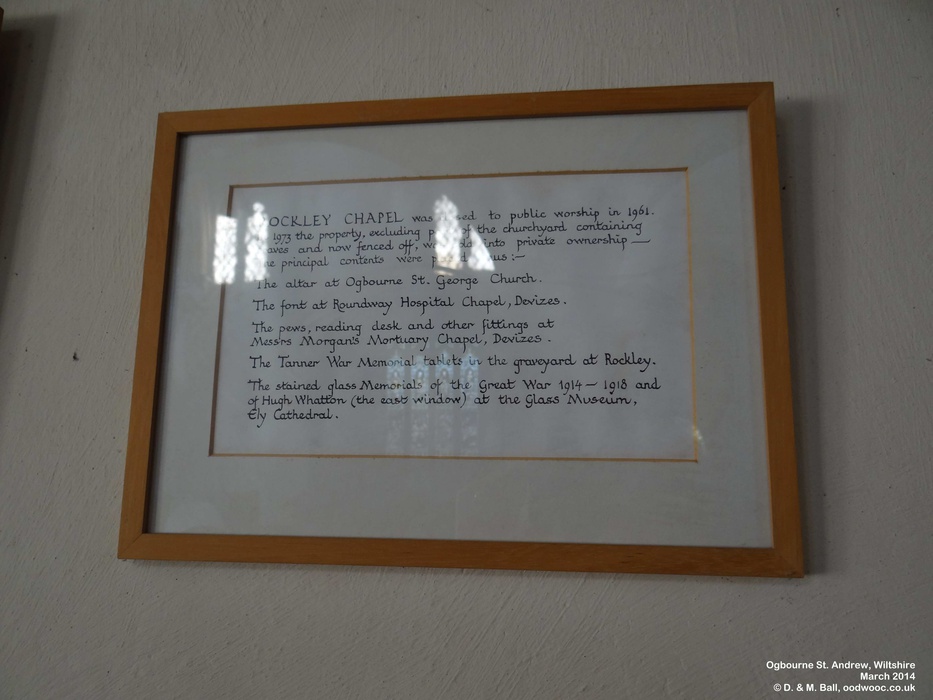 OCKLEY CHAPEL was to public worship in 1961.
1973 the property, excluding of the churchyard containing
and now fenced off, into private ownership —
principal contents were :—
The altar at Ogbourne St. George Church.
The font at Roundway Hospital Chapel, Devizes.
The pews, reading desk and other fittings at
Messrs Morgan's Mortuary Chapel, Devizes.
The Tanner War Memorial tablets in the graveyard at Rockley.
The stained glass Memorials of the Great War 1914 – 1918 and
of Hugh Whatton (the east window) at the Glass Museum,
Ely Cathedral.
Ogbourne St. Andrew, Wiltshire
March 2014
© D. & M. Ball, oodwooc.co.uk